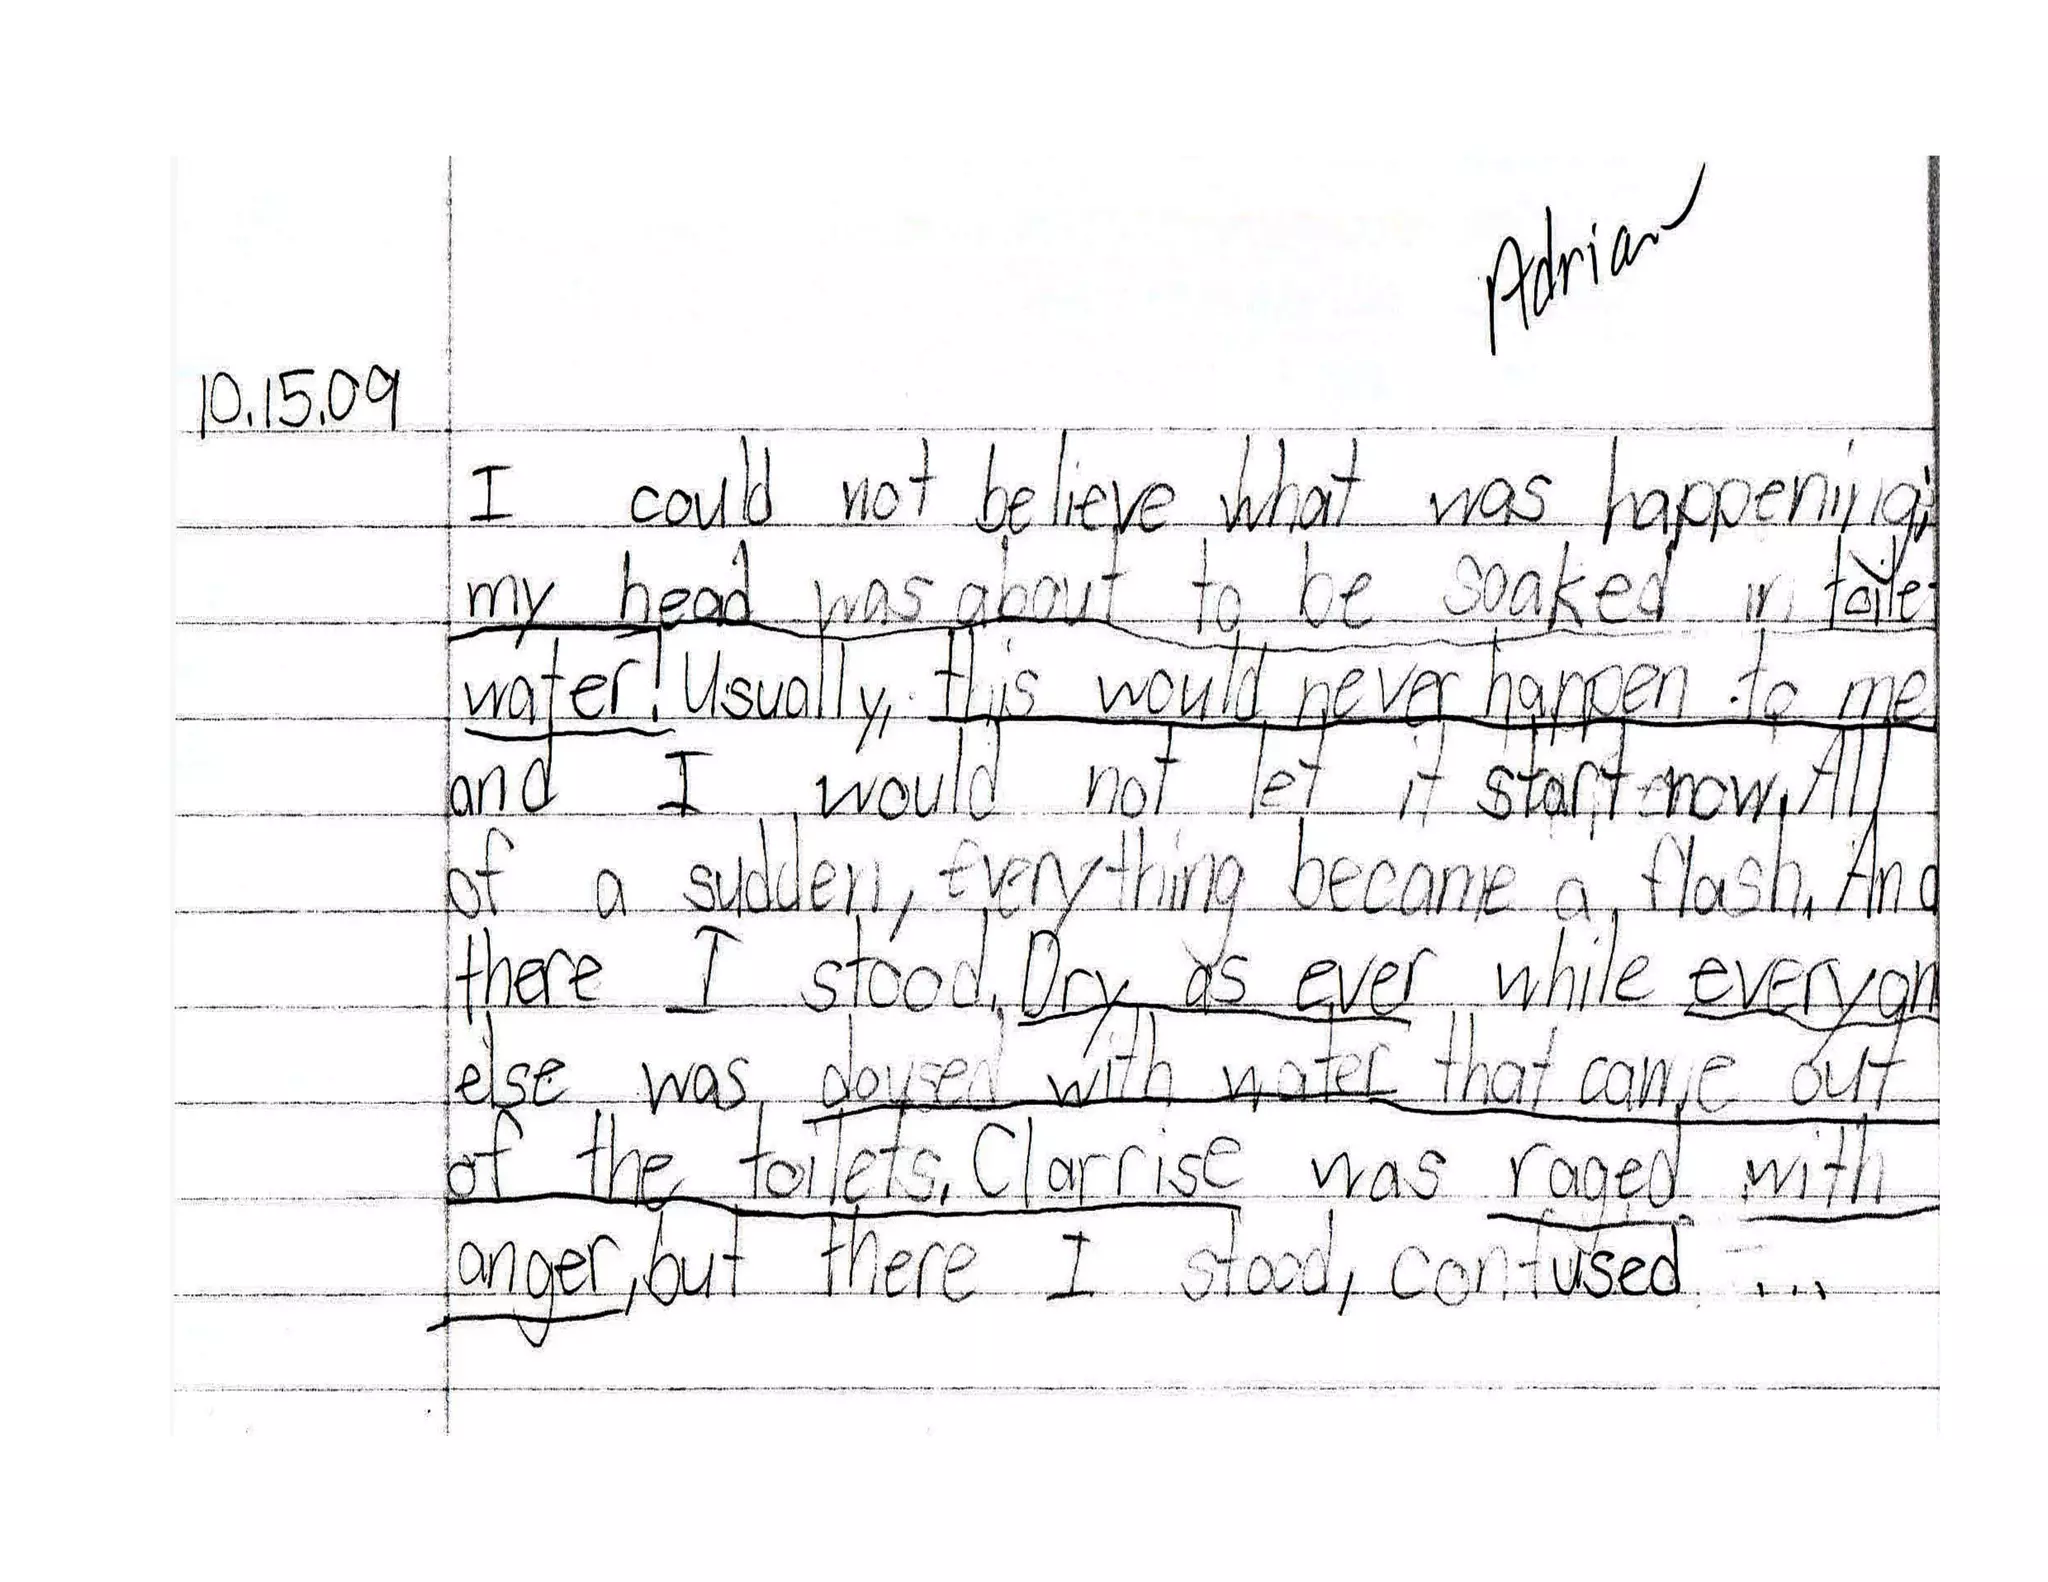 Adrian
10.15.09
I could not believe what was happening;
my head was about to be soaked in toilet
water! Usually, this would never happen to me
and I would not let it start now. All
of a sudden, everything became a flash. And
there I stood. Dry as ever while everyon
else was doused with water that came out
of the toilets. Clarrise was raged with
anger, but there I stood, confused ...